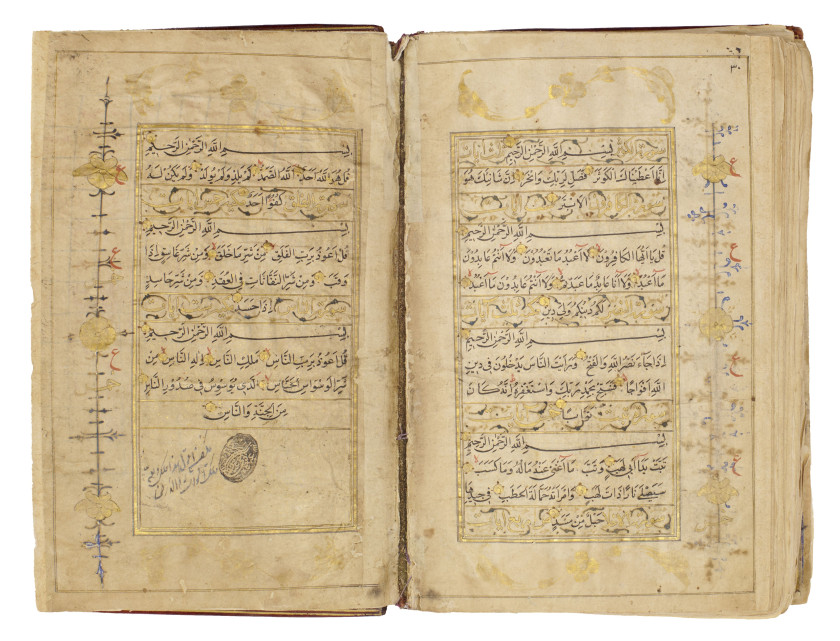 ٣٠
بِسْمِ اللَّهِ الرَّحْمٰنِ الرَّحِيمِ
اِنَّا اَعْطَيْنَاكَ الْكَوْثَرَ فَصَلِّ لِرَبِّكَ وَانْحَرْ اِنَّ شَانِئَكَ هُوَ
الْاَبْتَرُ
بِسْمِ اللَّهِ الرَّحْمٰنِ الرَّحِيمِ
قُلْ يَا اَيُّهَا الْكَافِرُونَ لَا اَعْبُدُ مَا تَعْبُدُونَ وَلَا اَنْتُمْ عَابِدُونَ
مَا اَعْبُدُ وَلَا اَنَا عَابِدٌ مَا عَبَدْتُمْ وَلَا اَنْتُمْ عَابِدُونَ مَا اَعْبُدُ
لَكُمْ دِينُكُمْ وَلِيَ دِينِ
بِسْمِ اللَّهِ الرَّحْمٰنِ الرَّحِيمِ
اِذَا جَاءَ نَصْرُ اللَّهِ وَالْفَتْحُ وَرَاَيْتَ النَّاسَ يَدْخُلُونَ فِي دِينِ
اللَّهِ اَفْوَاجًا فَسَبِّحْ بِحَمْدِ رَبِّكَ وَاسْتَغْفِرْهُ اِنَّهُ كَانَ
تَوَّابًا
بِسْمِ اللَّهِ الرَّحْمٰنِ الرَّحِيمِ
تَبَّتْ يَدَا اَبِي لَهَبٍ وَتَبَّ مَا اَغْنٰى عَنْهُ مَالُهُ وَمَا كَسَبَ
سَيَصْلٰى نَارًا ذَاتَ لَهَبٍ وَامْرَاَتُهُ حَمَّالَةَ الْحَطَبِ فِي جِيدِهَا
حَبْلٌ مِنْ مَسَدٍ
بِسْمِ اللَّهِ الرَّحْمٰنِ الرَّحِيمِ
قُلْ هُوَ اللَّهُ اَحَدٌ اَللَّهُ الصَّمَدُ لَمْ يَلِدْ وَلَمْ يُولَدْ وَلَمْ يَكُنْ لَهُ
كُفُوًا اَحَدٌ
بِسْمِ اللَّهِ الرَّحْمٰنِ الرَّحِيمِ
قُلْ اَعُوذُ بِرَبِّ الْفَلَقِ مِنْ شَرِّ مَا خَلَقَ وَمِنْ شَرِّ غَاسِقٍ اِذَا
وَقَبَ وَمِنْ شَرِّ النَّفَّاثَاتِ فِي الْعُقَدِ وَمِنْ شَرِّ حَاسِدٍ
اِذَا حَسَدَ
بِسْمِ اللَّهِ الرَّحْمٰنِ الرَّحِيمِ
قُلْ اَعُوذُ بِرَبِّ النَّاسِ مَلِكِ النَّاسِ اِلٰهِ النَّاسِ مِنْ
شَرِّ الْوَسْوَاسِ الْخَنَّاسِ الَّذِي يُوَسْوِسُ فِي صُدُورِ النَّاسِ
مِنَ الْجِنَّةِ وَالنَّاسِ